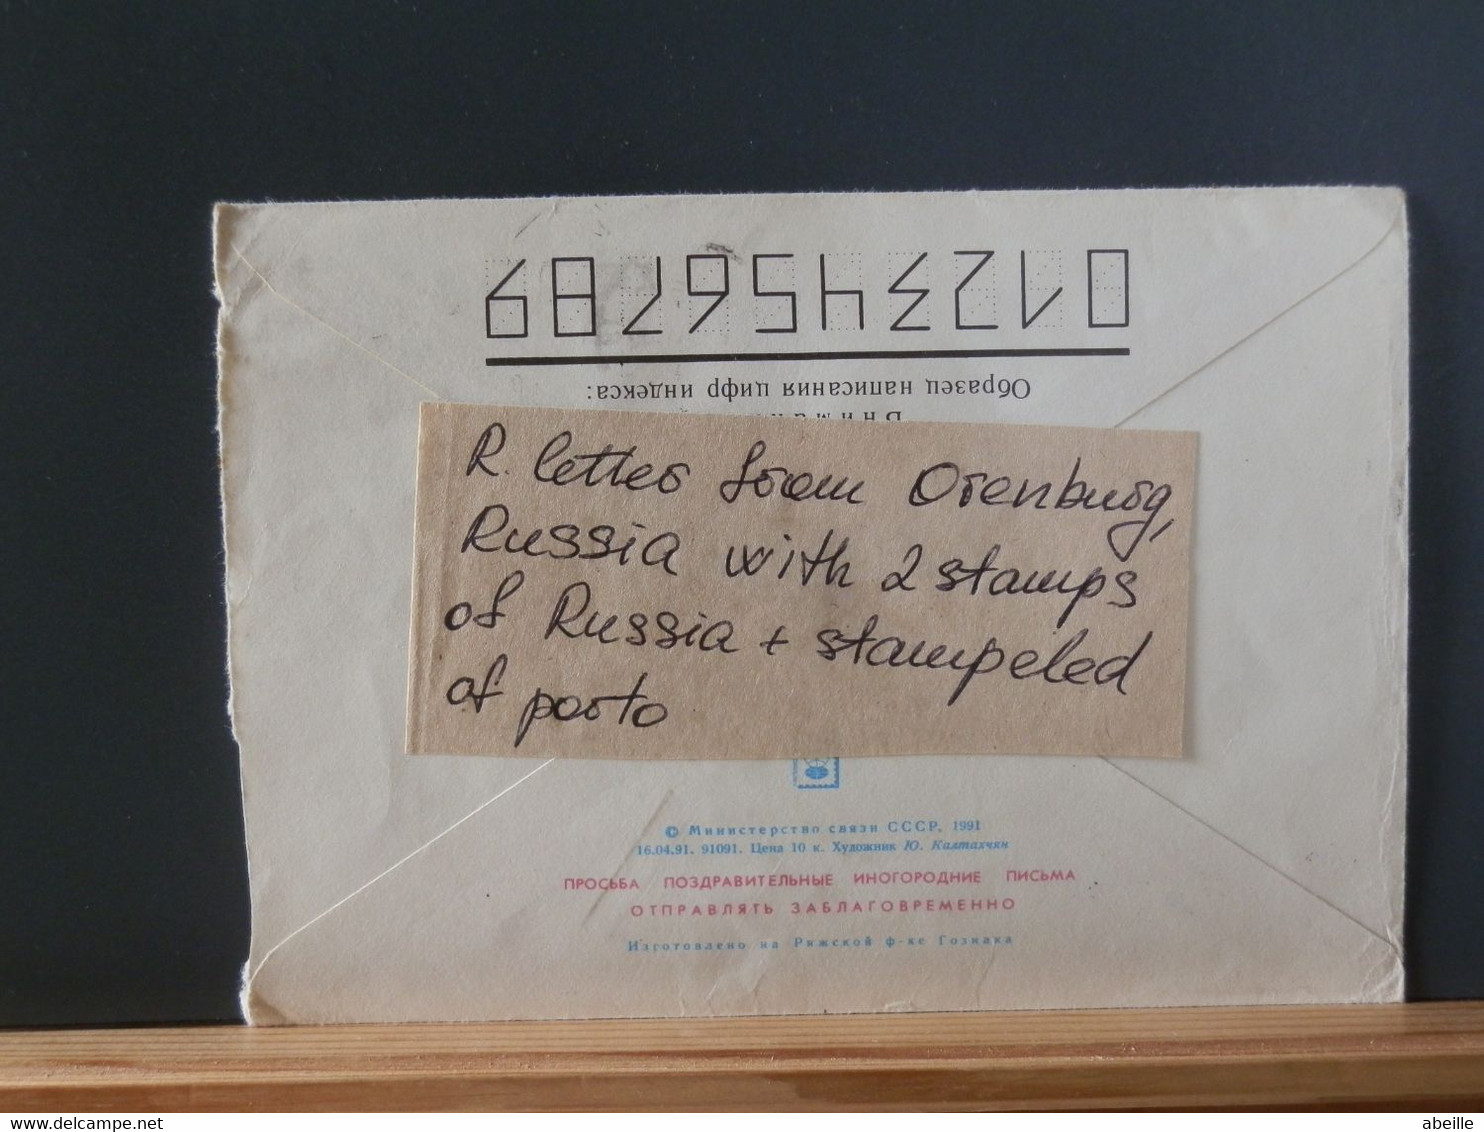 0123456789
Образец написания цифр индекса:
R. letter from Orenburg,
Russia with 2 stamps
of Russia + stampeled
of porto
© Министерство связи СССР, 1991
16.04.91. 91091. Цена 10 к. Художник Ю. Калтахчян
ПРОСЬБА ПОЗДРАВИТЕЛЬНЫЕ ИНОГОРОДНИЕ ПИСЬМА
ОТПРАВЛЯТЬ ЗАБЛАГОВРЕМЕННО
Изготовлено на Рижской ф-ке Гознака
abeille